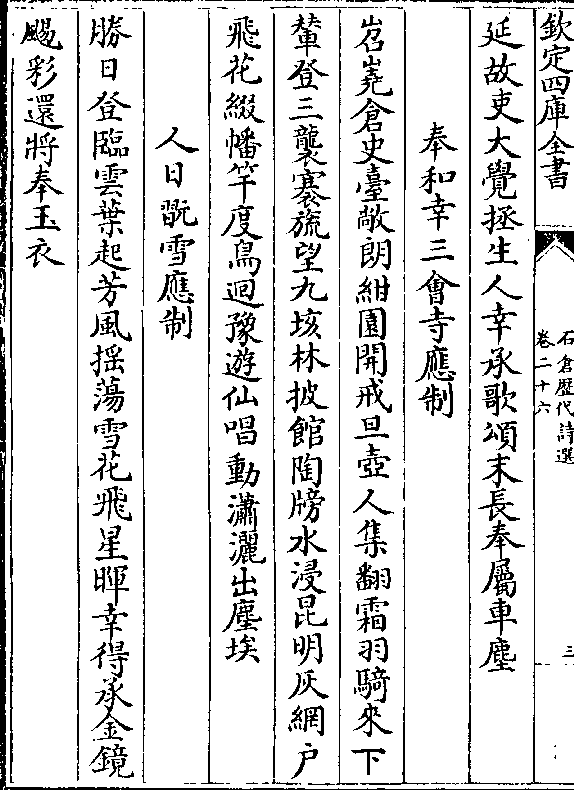 欽定四庫全書
石倉歷代詩選
卷二十六
三
延故吏大覺拯生人幸承歌頌末長奉屬車塵
奉和幸三會寺應制
岧嶤倉史臺敞朗紺園開戒旦壺人集翻霜羽騎來下
輦登三襲褰旒望九垓林披館陶牓水浸昆明灰網户
飛花綴幡竿度鳥迴豫遊仙唱動瀟灑出塵埃
人日翫雪應制
勝日登臨雲葉起芳風揺蕩雪花飛呈暉幸得承金鏡
颺彩還將奉玉衣